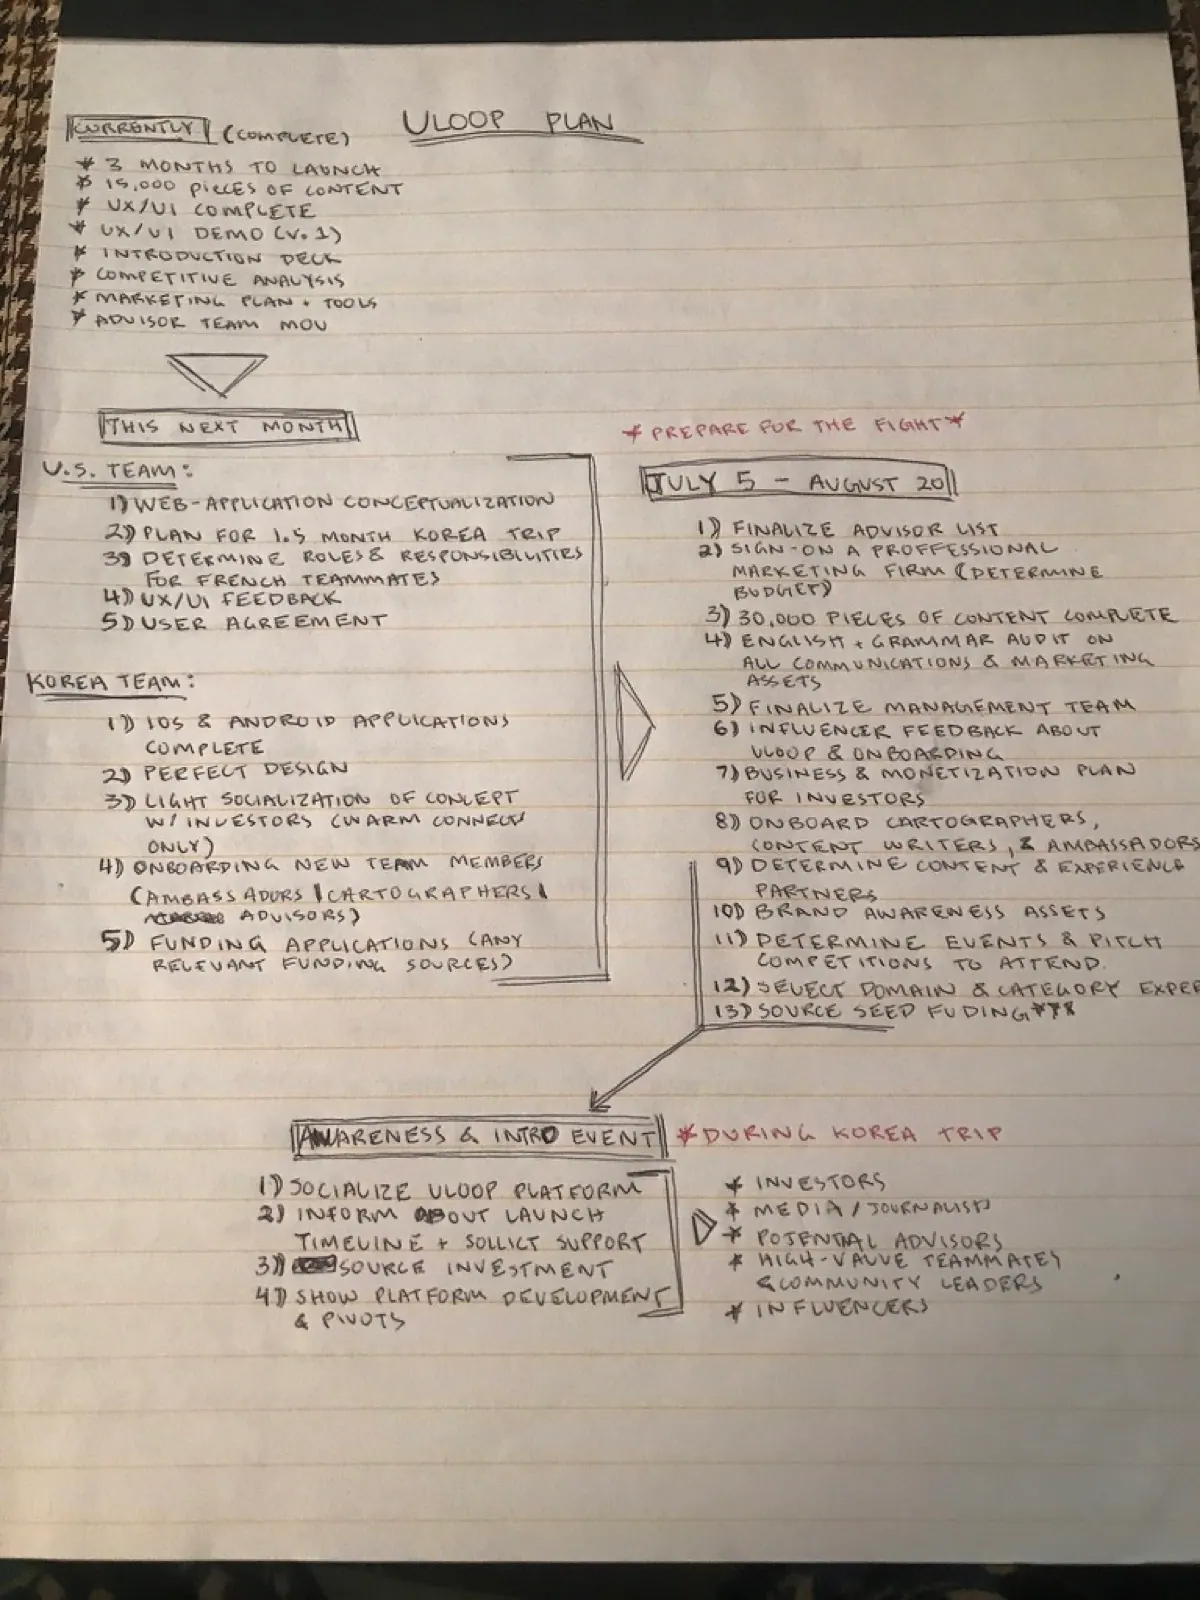 ULOOP PLAN
CURRENTLY (COMPLETE)
* 3 MONTHS TO LAUNCH
* 15,000 PIECES OF CONTENT
* UX/UI COMPLETE
* UX/UI DEMO (V.1)
* INTRODUCTION DECK
* COMPETITIVE ANALYSIS
* MARKETING PLAN + TOOLS
* ADVISOR TEAM MOU
THIS NEXT MONTH
U.S. TEAM:
1) WEB-APPLICATION CONCEPTUALIZATION
2) PLAN FOR 1.5 MONTH KOREA TRIP
3) DETERMINE ROLES & RESPONSIBILITIES
FOR FRENCH TEAMMATES
4) UX/UI FEEDBACK
5) USER AGREEMENT
KOREA TEAM:
1) IOS & ANDROID APPLICATIONS
COMPLETE
2) PERFECT DESIGN
3) LIGHT SOCIALIZATION OF CONCEPT
W/ INVESTORS (WARM CONNECTS
ONLY)
4) ONBOARDING NEW TEAM MEMBERS
(AMBASSADORS | CARTOGRAPHERS |
ADVISORS)
5) FUNDING APPLICATIONS (ANY
RELEVANT FUNDING SOURCES)
* PREPARE FOR THE FIGHT *
JULY 5 - AUGUST 20
1) FINALIZE ADVISOR LIST
2) SIGN-ON A PROFFESSIONAL
MARKETING FIRM (DETERMINE
BUDGET)
3) 30,000 PIECES OF CONTENT COMPLETE
4) ENGLISH + GRAMMAR AUDIT ON
ALL COMMUNICATIONS & MARKETING
ASSETS
5) FINALIZE MANAGEMENT TEAM
6) INFLUENCER FEEDBACK ABOUT
ULOOP & ONBOARDING
7) BUSINESS & MONETIZATION PLAN
FOR INVESTORS
8) ONBOARD CARTOGRAPHERS,
CONTENT WRITERS, & AMBASSADORS
9) DETERMINE CONTENT & EXPERIENCE
PARTNERS
10) BRAND AWARENESS ASSETS
11) DETERMINE EVENTS & PITCH
COMPETITIONS TO ATTEND.
12) SELECT DOMAIN & CATEGORY EXPER
13) SOURCE SEED FUDING***
AWARENESS & INTRO EVENT
* DURING KOREA TRIP
1) SOCIALIZE ULOOP PLATFORM
2) INFORM ABOUT LAUNCH
TIMELINE + SOLLICT SUPPORT
3) SOURCE INVESTMENT
4) SHOW PLATFORM DEVELOPMENT
& PIVOTS
* INVESTORS
* MEDIA / JOURNALISTS
* POTENTIAL ADVISORS
* HIGH-VALUE TEAMMATES
& COMMUNITY LEADERS
* INFLUENCERS